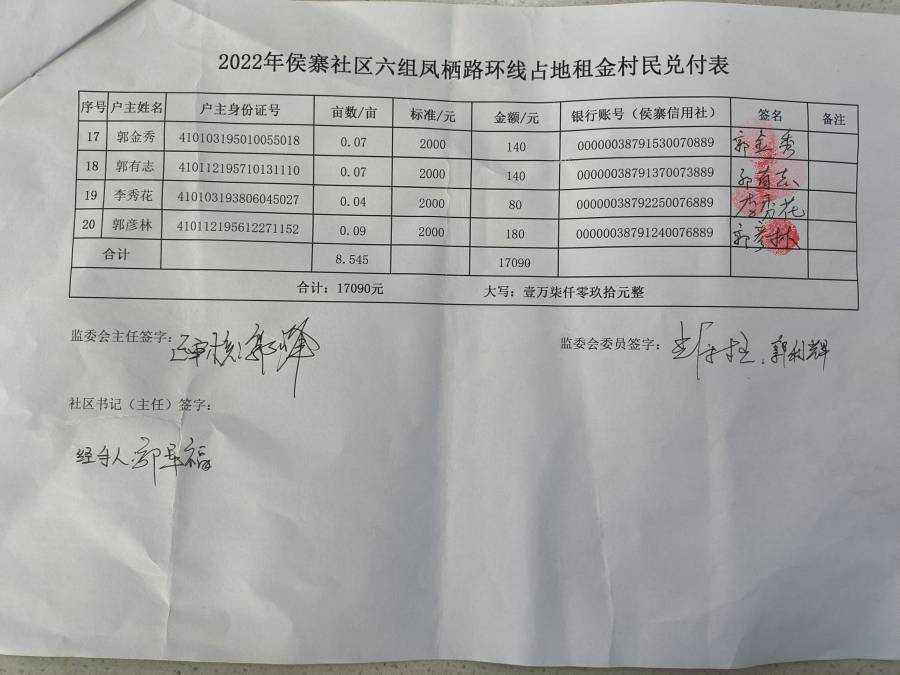 2022年侯寨社区六组凤栖路环线占地租金村民兑付表
序号 户主姓名 户主身份证号 亩数/亩 标准/元 金额/元 银行账号（侯寨信用社） 签名 备注
17 郭金秀 410103195010055018 0.07 2000 140 00000038791530070889 郭金秀
18 郭有志 410112195710131110 0.07 2000 140 00000038791370073889 郭有志
19 李秀花 410103193806045027 0.04 2000 80 00000038792250076889 李秀花
20 郭彦林 410112195612271152 0.09 2000 180 00000038791240076889 郭彦林
合计 8.545 17090
合计：17090元 大写：壹万柒仟零玖拾元整
监委会主任签字： 监委会委员签字： 郭利辉
社区书记（主任）签字：
经手人：郭旱福